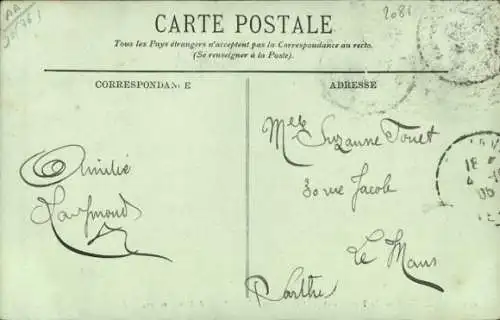 2081
CARTE POSTALE
Tous les Pays étrangers n'acceptent pas la Correspondance au recto.
(Se renseigner à la Poste).
CORRESPONDANCE
ADRESSE
Amitié
Raymond
Melle Suzanne Touet
30 rue Jacob
Le Mans
Sarthe